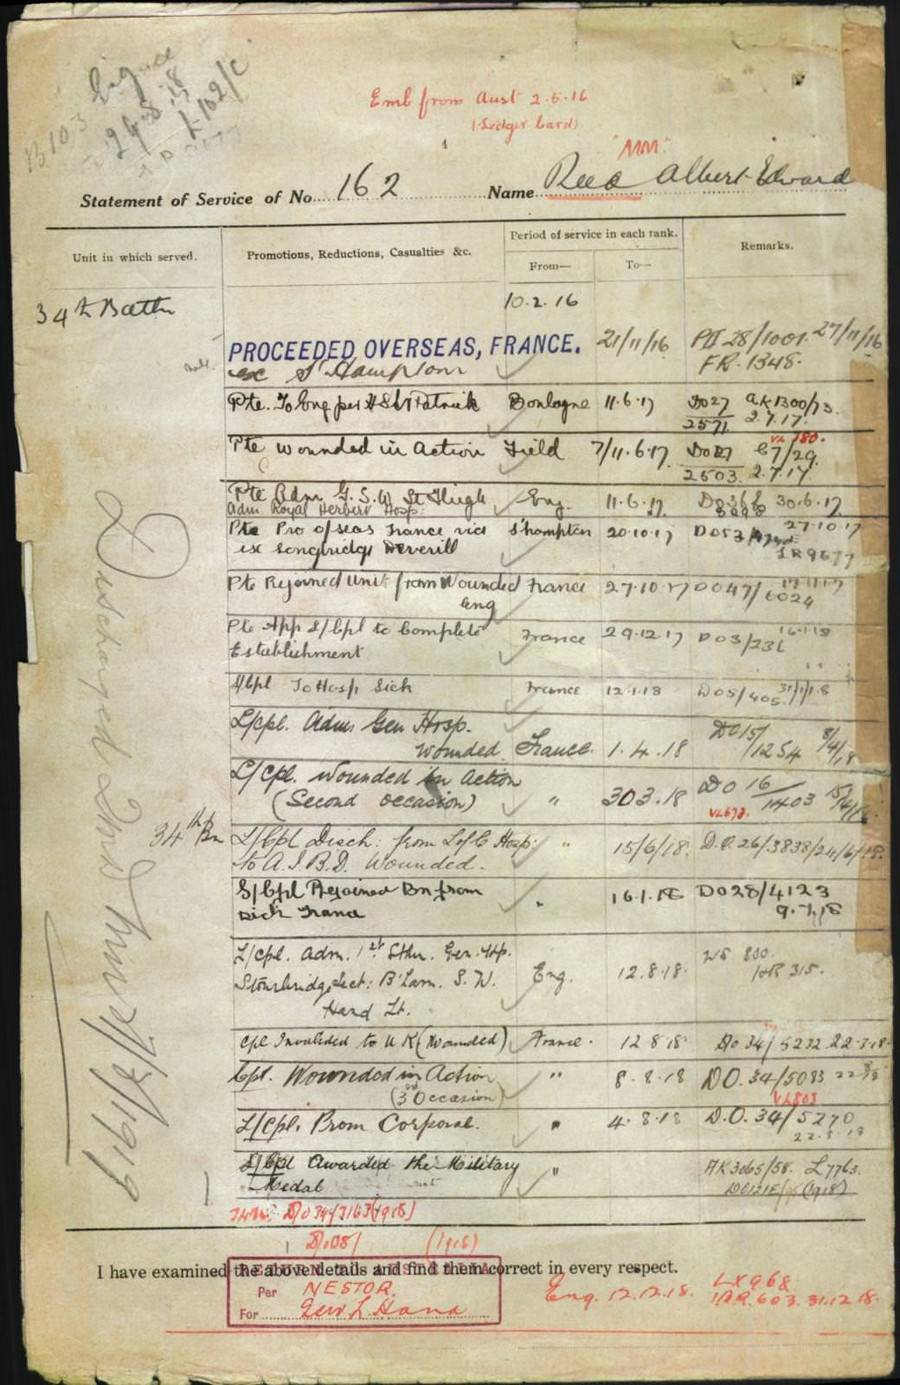 Emb from Aust 2.5.16
(Ledger Card)
"MM"
Statement of Service of No. 162 Name Reed Albert Edward
Unit in which served.
Promotions, Reductions, Casualties &c.
Period of service in each rank.
From—
To—
Remarks.
34th Battn
10.2.16
PROCEEDED OVERSEAS, FRANCE. 21/11/16 28/1001 27/11/16
ex S'Hampton FR. 1348.
Pte. To Eng per H.S. St Patrick Boulogne 11.6.17 DO27 AK1300/73.
2571 2.7.17.
Pte wounded in Action Field 7/11.6.17 DO27 67/29
2503 2.7.17
Pte Adm G.S.W. St Thigh Eng. 11.6.17 30.6.17
Adm Royal Herbert Hosp.
Pte Pro o/seas France via S'hampton 20.10.17 DO53/ 27.10.17
ex Longbridge Deverill
Pte Rejoined unit from Wounded France 27.10.17 DO47/6024
Eng
Pte App L/Cpl to Complete France 29.12.17 DO3/236 16.1.18
Establishment
L/Cpl To Hosp Sick France 12.1.18 DO5/405 31/1/18
L/Cpl. Adm Gen Hosp.
Wounded France 1.4.18 DO15/1254 8/4/18
L/Cpl. Wounded in Action
(Second occasion) " 30 3.18 DO 16/1403
34th Bn
L/Cpl Disch: from Hosp: " 15/6/18. D.O.26/3838/24/6/18.
to A.I.B.D. Wounded.
L/Cpl Rejoined Bn from " 16.1.18 DO28/4123
Sick France 9.7.18
L/Cpl. Adm. 1st Sthn. Gen. Hp.
Stourbridge Sect: B'ham. S.W. Eng. 12.8.18. WS 800
Hand Lt. HR 315.
Cpl Invalided to U K (Wounded) France. 12 8 18 DO 34/5232 22.8.18
Cpl. Wounded in Action " 8.8.18 DO. 34/5083
(3rd Occasion) VL803
L/Cpl. Prom Corporal. " 4.8.18 D.O. 34/5270
22.8.18
L/Cpl Awarded the Military " AK3065/58. L7763.
Medal (1918)
DO34/3163(1918)
(1918)
Discharged
1919
I have examined the above details and find them correct in every respect.
RETURN TO AUSTRALIA
Per NESTOR
For Gsw L. Hand
Eng. 12.12.18. LX968
603. 31.12.18.